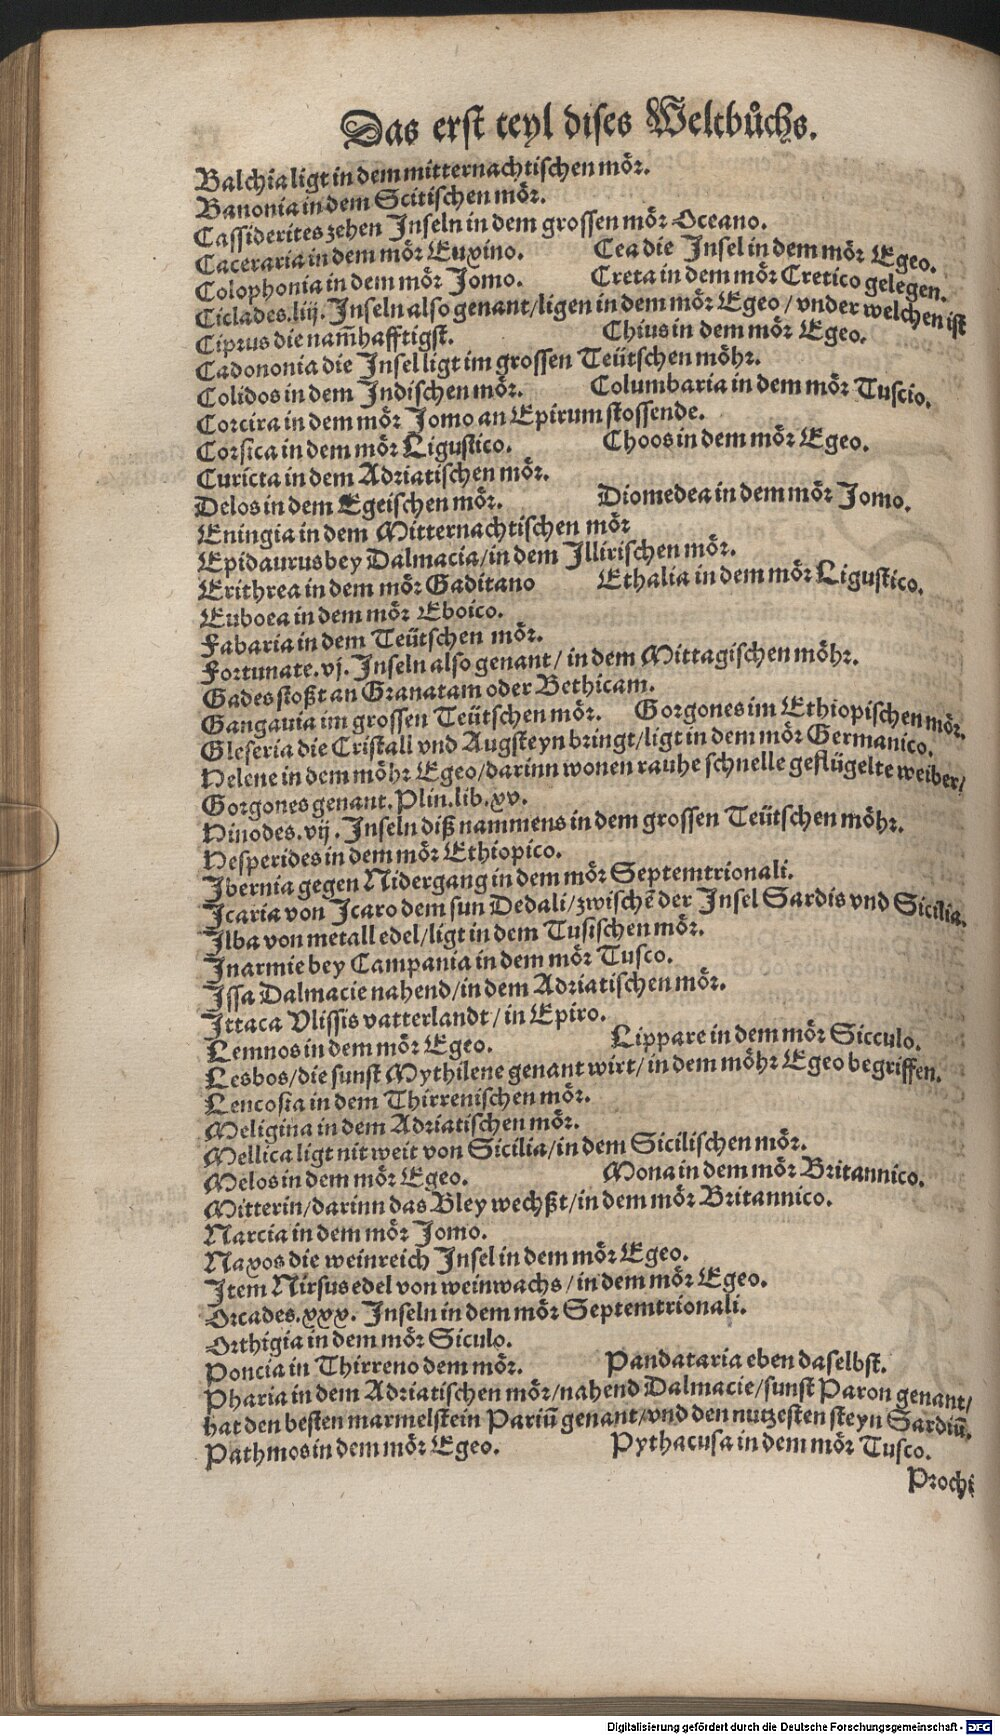 Das erst teyl dises Weltbůchs.
Balchia ligt in dem mitternachtischen mör.
Banonia in dem Scitischen mör.
Cassiderites zehen Inseln in dem grossen mör Oceano.
Caceraria in dem mör Euxino. Cea die Insel in dem mör Egeo.
Colophonia in dem mör Jomo. Creta in dem mör Cretico gelegen.
Ciclades.liij. Inseln also genant/ligen in dem mör Egeo/vnder welchen ist
Ciprus die nam̃hafftigst. Chius in dem mör Egeo.
Cadononia die Insel ligt im grossen Teütschen möhr.
Colidos in dem Indischen mör. Columbaria in dem mör Tuscio.
Corcira in dem mör Jomo an Epirum stossende.
Corsica in dem mör Ligustico. Choos in dem mör Egeo.
Curicta in dem Adriatischen mör.
Delos in dem Egeischen mör. Diomedea in dem mör Jomo.
Eningia in dem Mitternachtischen mör
Epidaurus bey Dalmacia/in dem Illirischen mör.
Erithrea in dem mör Gaditano Ethalia in dem mör Ligustico.
Euboea in dem mör Eboico.
Fabaria in dem Teütschen mör.
Fortunate.vj. Inseln also genant/ in dem Mittagischen möhr.
Gades stoßt an Granatam oder Bethicam.
Gangauia im grossen Teütschen mör. Gorgones im Ethiopischen mör.
Gleseria die Cristall vnd Augsteyn bringt/ligt in dem mör Germanico.
Helene in dem möhr Egeo/darinn wonen rauhe schnelle geflügelte weiber/
Gorgones genant. Plin.lib.xv.
Hinodes.vij. Inseln diß nammens in dem grossen Teütschen möhr.
Hesperides in dem mör Ethiopico.
Ibernia gegen Nidergang in dem mör Septemtrionali.
Icaria von Icaro dem sun Dedali/zwischẽ der Insel Sardis vnd Sicilia.
Ilba von metall edel/ligt in dem Tusischen mör.
Inarmie bey Campania in dem mör Tusco.
Issa Dalmacie nahend/in dem Adriatischen mör.
Ittaca Vlissis vatterlandt/ in Epiro.
Lemnos in dem mör Egeo. Lippare in dem mör Sicculo.
Lesbos/die sunst Mythilene genant wirt/ in dem möhr Egeo begriffen.
Lencosia in dem Thirrenischen mör.
Meligina in dem Adriatischen mör.
Mellica ligt nit weit von Sicilia/in dem Sicilischen mör.
Melos in dem mör Egeo. Mona in dem mör Britannico.
Mitterin/darinn das Bley wechßt/in dem mör Britannico.
Narcia in dem mör Jomo.
Naxos die weinreich Insel in dem mör Egeo.
Item Nirsus edel von weinwachs/in dem mör Egeo.
Orcades.xxx. Inseln in dem mör Septemtrionali.
Orthigia in dem mör Siculo.
Poncia in Thirreno dem mör. Pandataria eben daselbst.
Pharia in dem Adriatischen mör/nahend Dalmacie/sunst Paron genant/
hat den besten marmelstein Pariũ genant/vnd den nutzesten steyn Sardiũ.
Pathmos in dem mör Egeo. Pythacusa in dem mör Tusco.
Prochi
Digitalisierung gefördert durch die Deutsche Forschungsgemeinschaft - DFG